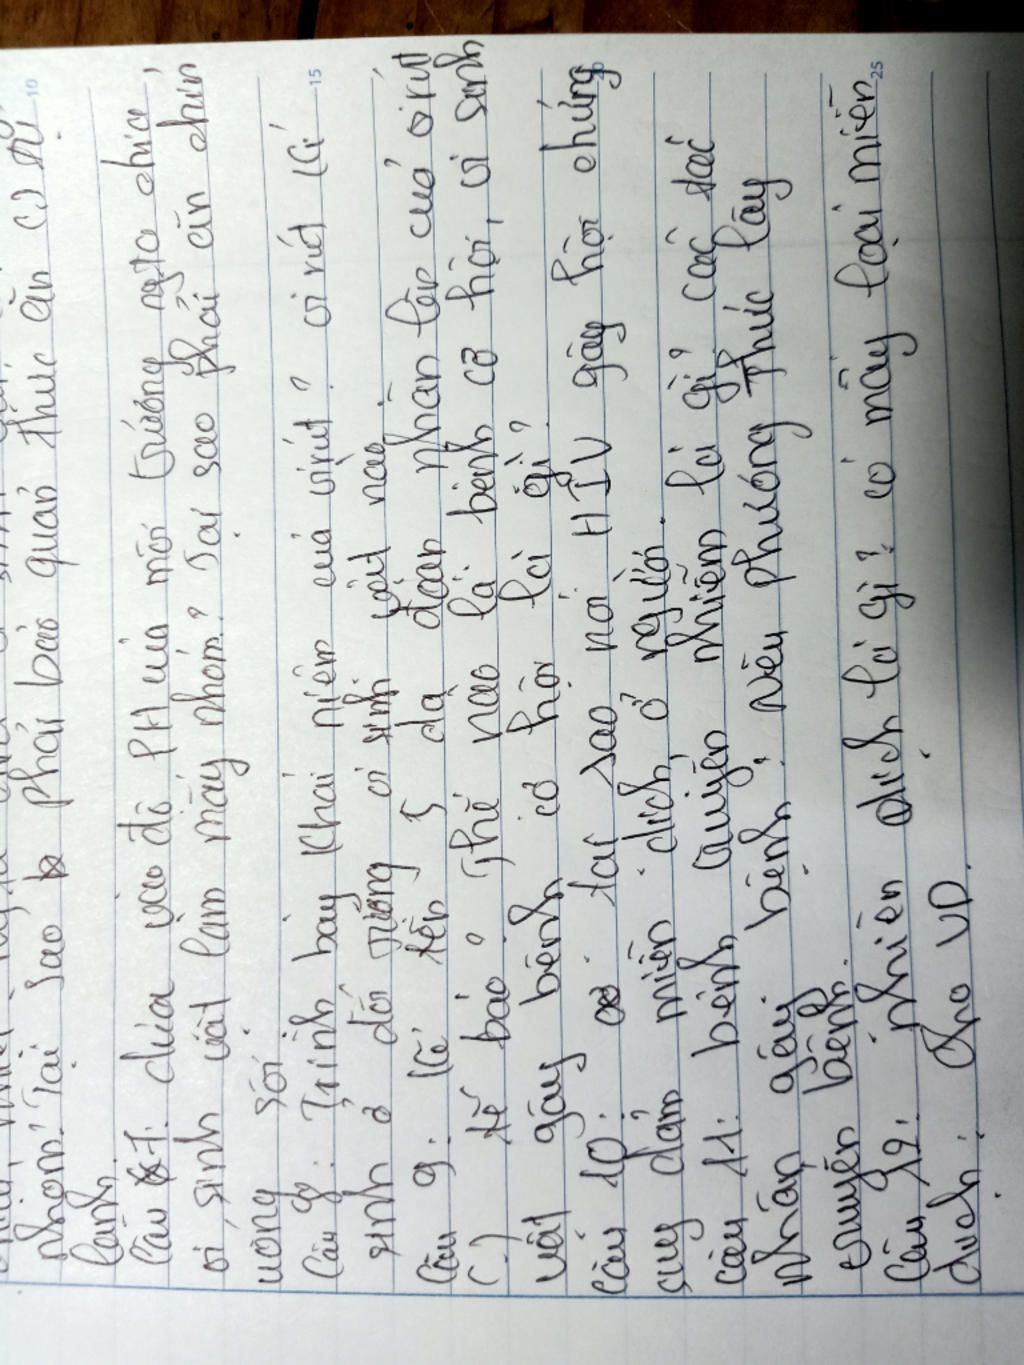 nhóm? Tại sao phải bảo quản thức ăn ở tủ
lạnh.
Câu 7: dựa vào độ PH của môi trường người ta chia
vi sinh vật làm mấy nhóm? Tại sao phải ăn chín
uống sôi
Câu 8: Trình bày khái niệm của virut? vi rút kí
sinh ở đối tượng vi sinh vật nào.
Câu 9: Kể tên 5 dạ đoạn nhân lên của virut
(-) tế bào? Thế nào là bệnh cơ hội, vi sinh
vật gây bệnh cơ hội là gì?
Câu 10: tại sao nói HIV gây hội chứng
suy dảm miễn dịch ở người.
câu 11: bệnh truyền nhiễm là gì? các tác
nhân gây bệnh, nêu phương thức lây
truyền bệnh.
Câu 12: nhiên dịch là gì? có mấy loại miễn
dịch: cho VD.